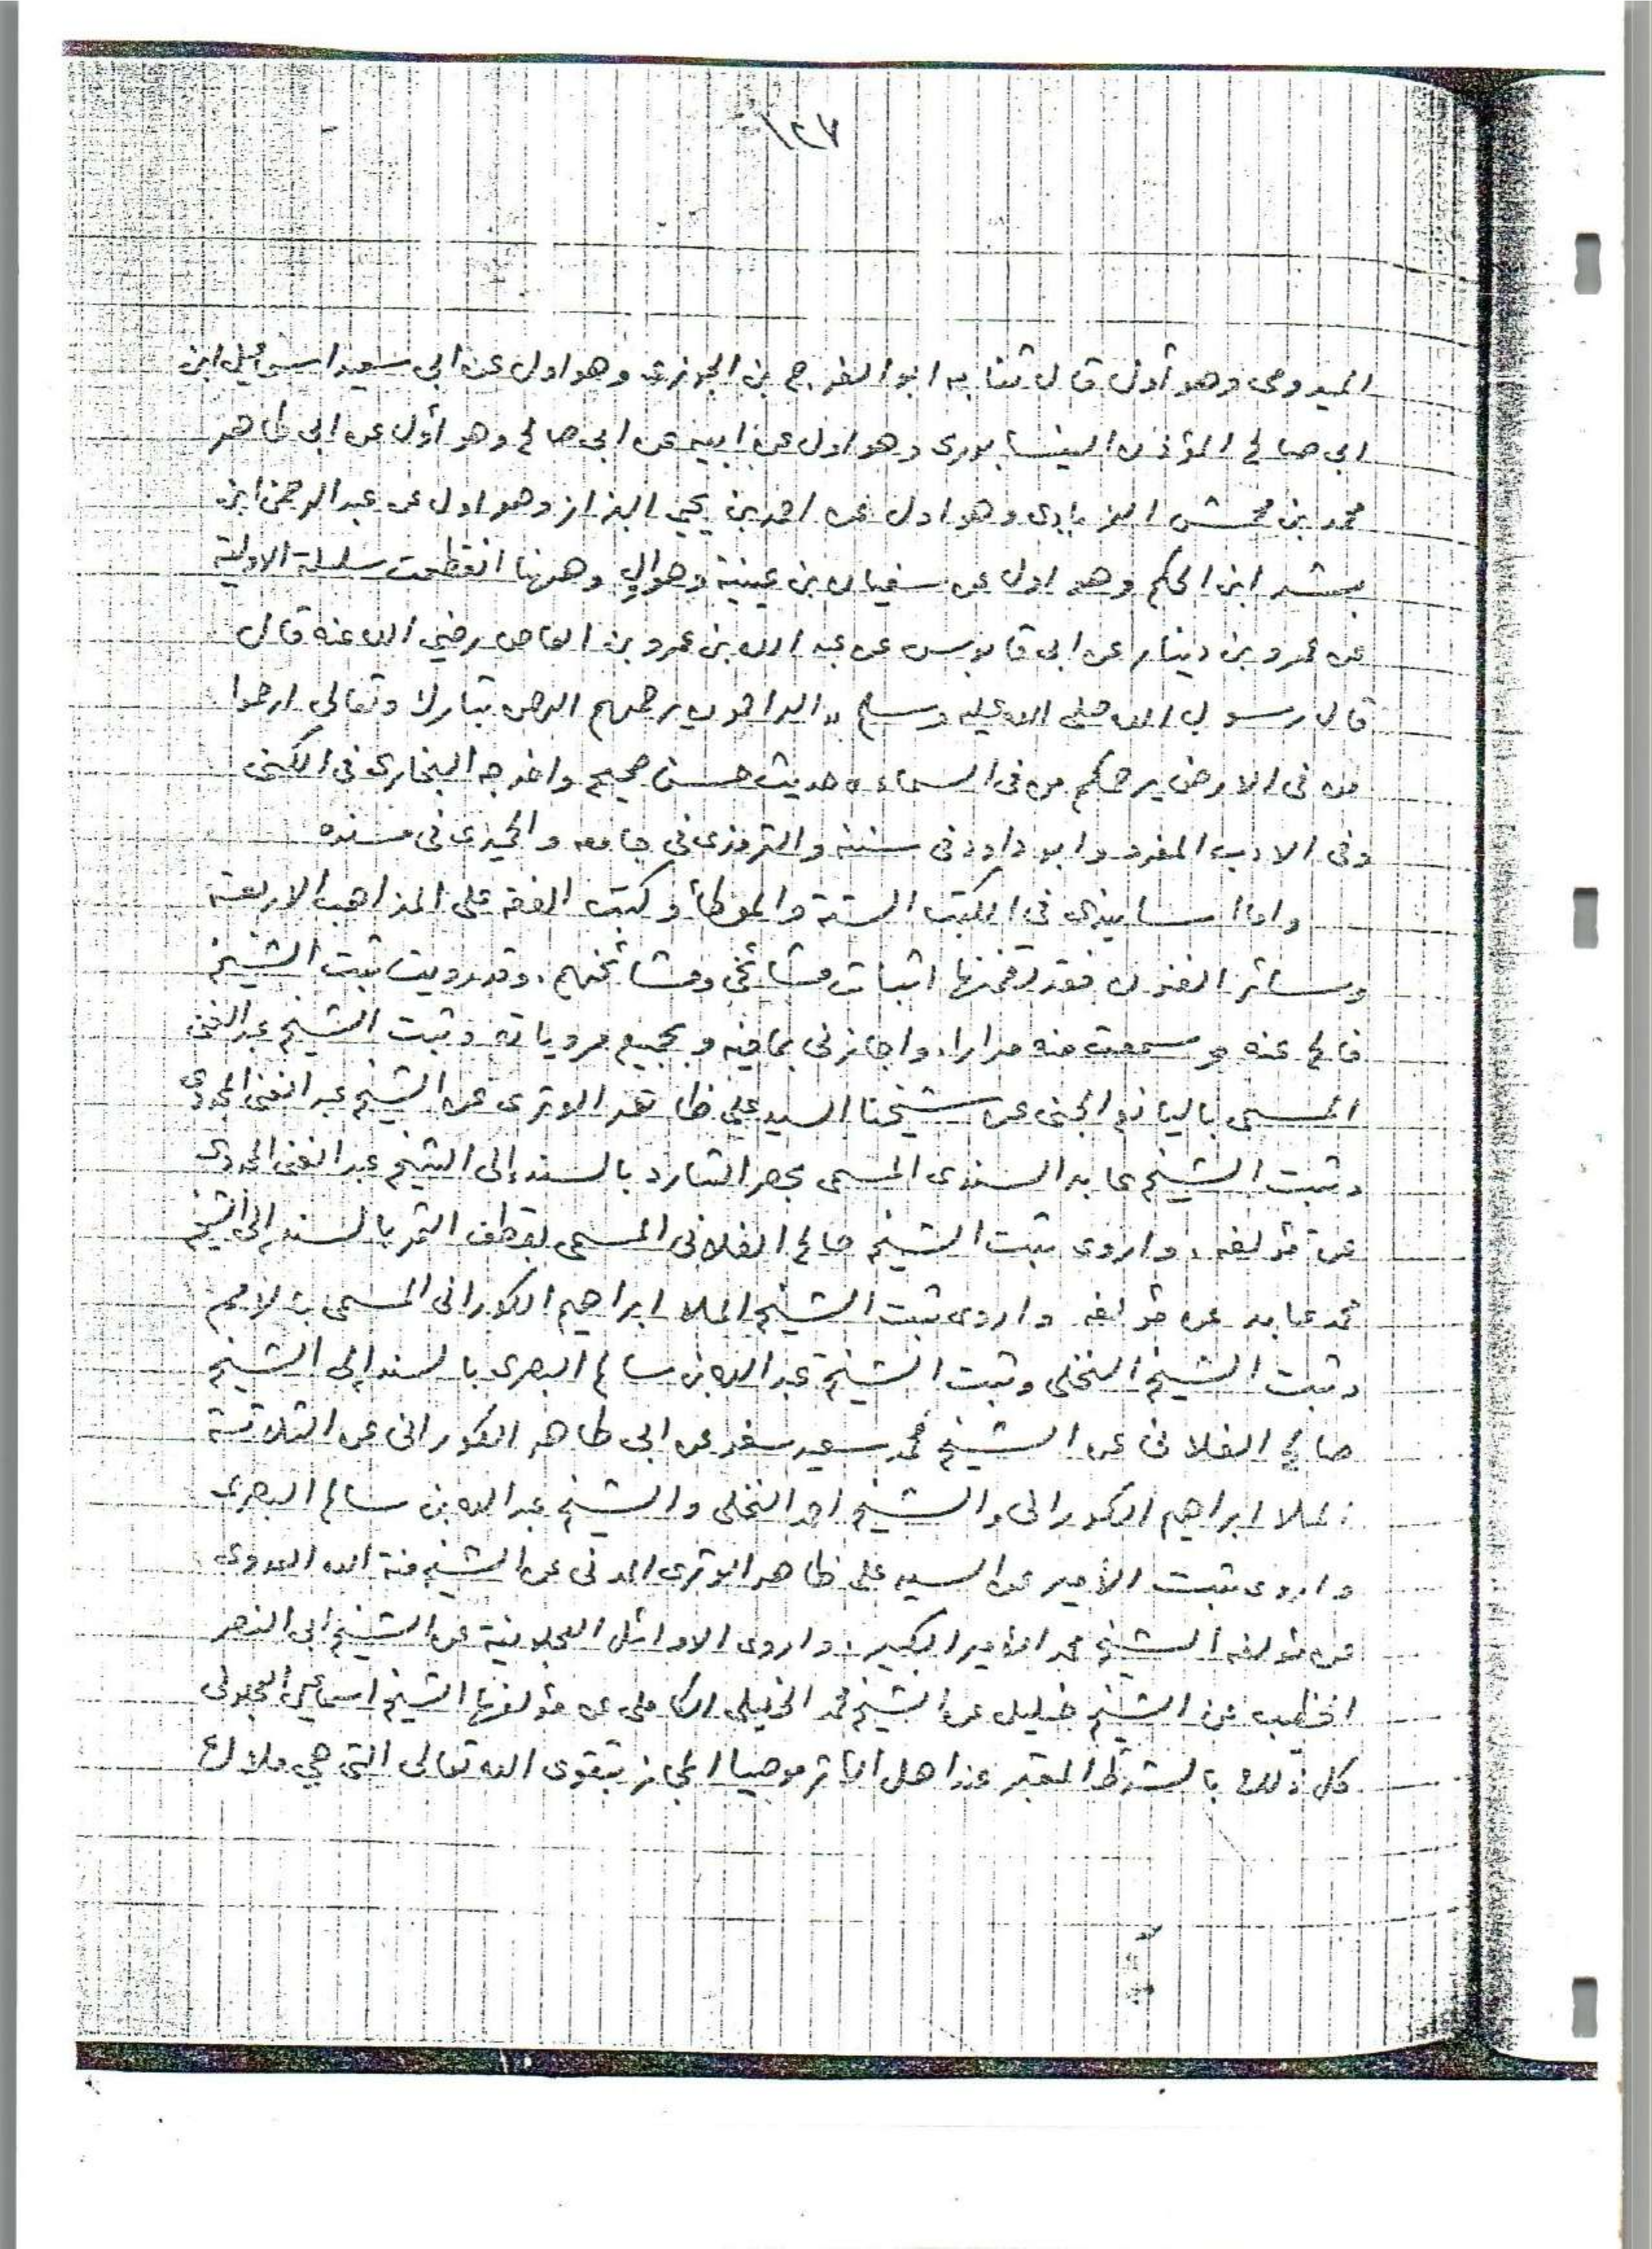 ١٢٧
الميدومى وهو أول قال ثنا به ابو الفرج بن الجوزى وهو اول عن ابي سعيد اسماعيل ابن
ابى صالح المؤذن النيسابورى وهو اول عن ابيه عن ابى صالح وهو أول عن ابى طاهر
محمد بن محمش الزيادى وهو اول عن احمد بن يحيى البزاز وهو اول عن عبد الرحمن ابن
بشر ابن الحكم وهو اول عن سفيان بن عيينة وهو اول وههنا انقطعت سلسلة الاولية
عن عمرو بن دينار عن ابى قابوس عن عبد الله بن عمرو بن العاص رضي الله عنه قال
قال رسول الله صلى الله عليه وسلم «الراحمون يرحمهم الرحمن تبارك وتعالى ارحموا
من فى الارض يرحمكم من فى السماء» حديث حسن صحيح واخرجه البخارى فى الكنى
وفى الادب المفرد وابو داود فى سننه والترمذى فى جامعه والحميدى فى مسنده
واما اسانيدى فى الكتب الستة والموطأ وكتب الفقه على المذاهب الاربعة
وسائر الفنون فقد تضمنها اثبات مشائخى ومشائخهم. وقد رويت ثبت الشيخ
فالح عنه وسمعت منه مرارا، واجازنى بما فيه وبجميع مروياته وثبت الشيخ عبد الغنى
المسمى باليانع الجنى عن شيخنا السيد على ظاهر الوترى عن الشيخ عبد الغنى المجددى
وثبت الشيخ عابد السندى المسمى بحصر الشارد بالسند إلى الشيخ عبد الغنى المجددى
عن مؤلفه. واروى ثبت الشيخ صالح الفلانى المسمى بقطف الثمر بالسند إلى الشيخ
محمد عابد عن مؤلفه واروى ثبت الشيخ الملا ابراهيم الكورانى المسمى بالامم
وثبت الشيخ النخلى وثبت الشيخ عبد الله بن سالم البصرى بالسند إلى الشيخ
صالح الفلانى عن الشيخ محمد سعيد سفر عن ابى طاهر الكورانى عن الثلاثة
الملا ابراهيم الكورانى والشيخ احمد النخلى والشيخ عبد الله بن سالم البصرى
واروى ثبت الأمير عن السيد على ظاهر الوترى المدنى عن الشيخ منة الله العدوى
عن مؤلفه الشيخ محمد الأمير الكبير. واروى الاوائل العجلونية عن الشيخ ابى النصر
الخطيب عن الشيخ خليل عن الشيخ محمد الخليلى الكاملى عن مؤلفها الشيخ اسماعيل العجلونى
كل ذلك بالشرط المعتبر عند اهل الاثر موصيا المجاز بتقوى الله تعالى التى هي ملاك